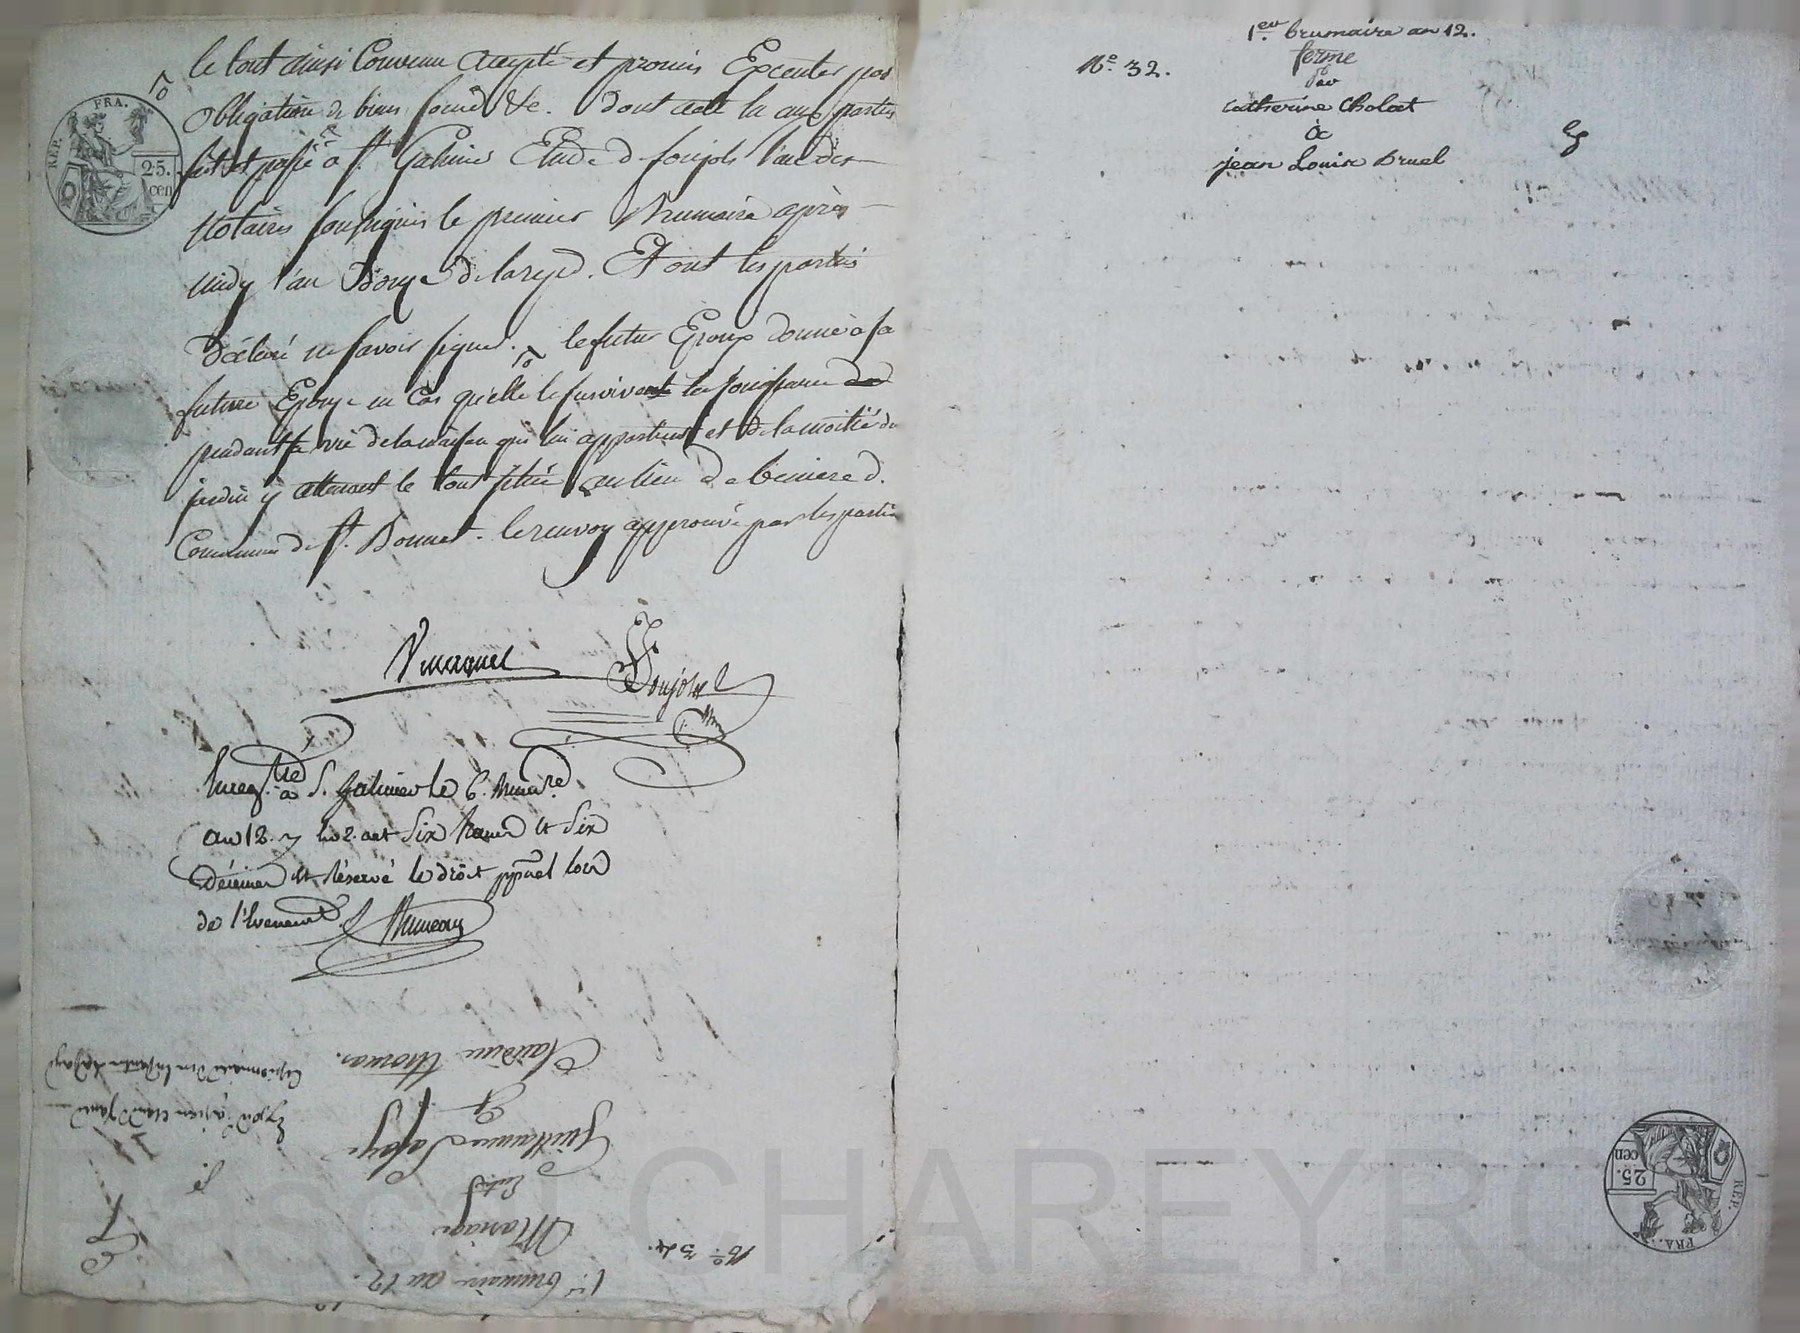 le tout ainsi Convenu accepté et promis Executer par
obligation de biens soumis &c. dont acte lu aux parties
fait et passé a St. Galmier Etude de foujols l'un des
Notaires soussignés le premier Brumaire après
midy l'an Douze de la rep. Et ont les parties
Déclaré ne savoir signer. le futur Epoux donne à sa
future Epouse en Cas qu'elle le survive la jouissance
pendant sa vie de la maison qui lui appartient et de la moitié du
jardin y attenant le tout situé au lieu de
Commune de St. Bonnet. le renvoy approuvé par les parties
foujols
Enreg. à S. Galmier le 6. Brum.re
an 12. six francs et six
Décimes et Réservé le droit lors
de l'Evenement
Bruneau
REP. FRA.
25. cen
1er. brumaire an 12.
Mariage
Entre
Guillaume Lafay
Et
Claudine Thomas.
No. 34.
1er. brumaire an 12.
ferme
par
No. 32.
Catherine Cholat
à
jean Louis Bruel
REP. FRA.
25. cen
CHAREYRO